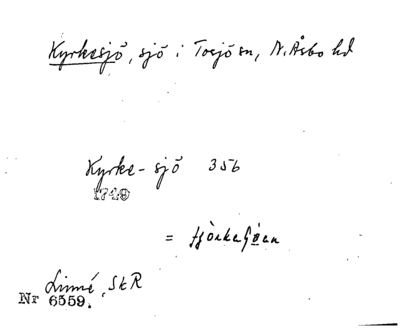 Kyrkesjö, sjö i Tosjö sn, N. Åsbo hd
Kyrke-sjö 356
1749
=
Linné, SkR
Nr 6559.